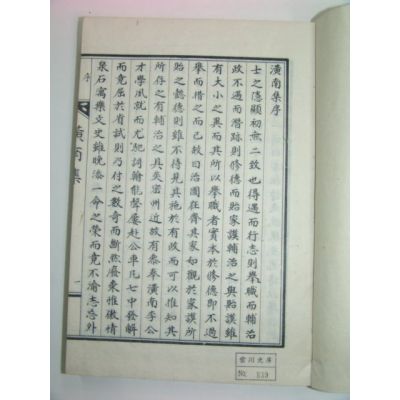 潢南集序
士之隱顯初無二致也得遇而行志則擧職而輔治
政不遇而潛跡則修德而貽家謨輔治之與貽謨雖
有大小之異而其所以擧職者實本於修德卽不過
擧而措之而已故曰治國在齊其家如觀於家謨
貽之懿德則雖不待見其施於有政而可以推知其
所存之有輔治之具矣密州近故有忝奉潢南李公
才學夙就而尤䮄詞翰能聲屢赴公車凡七中發解
而竟屈於省試則乃付之數奇而斷然廢棄惟徜情
泉石寓樂文史雖晩添一命之榮而竟不渝志意外
序
潢南集
一
雲川文庫
No. 839